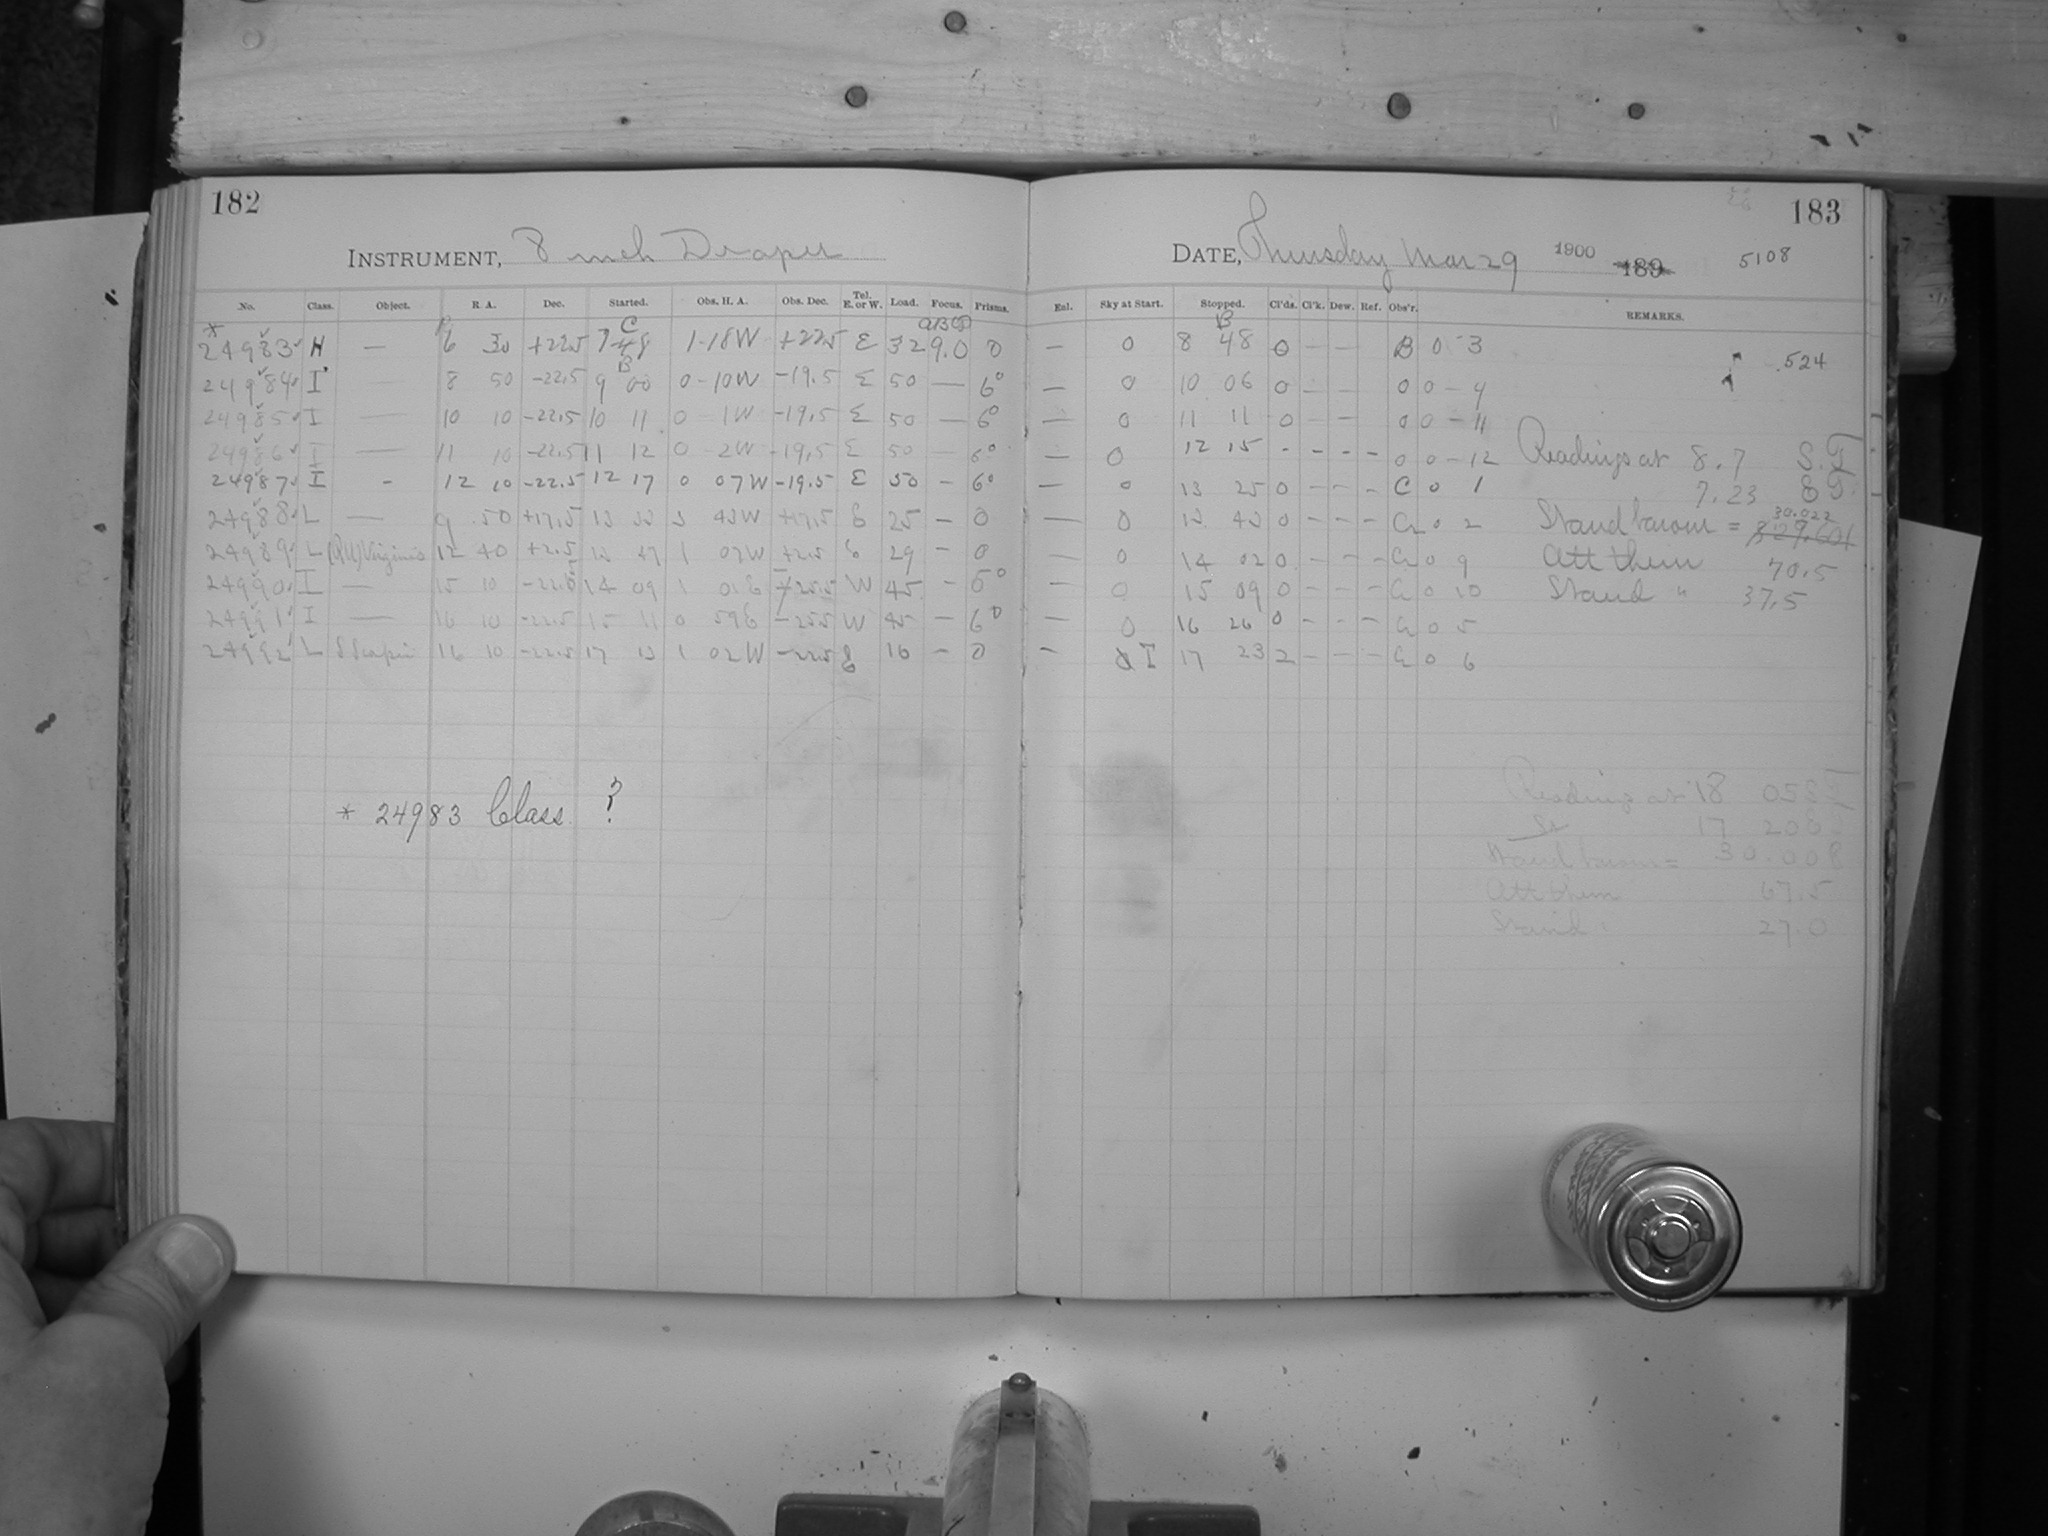 182
INSTRUMENT, 8 inch Draper
No. Class. Object. R. A. Dec. Started. Obs. H. A. Obs. Dec. Tel. E. or W. Load. Focus. Prisms.
* 24983 H — 6 30 +22.5 7 1-18W +22.5 E 32 9.0 0
24984 I — 8 50 -22.5 9 00 0-10W -19.5 E 50 — 6°
24985 I — 10 10 -22.5 10 11 0 1W -19.5 E 50 — 6°
24986 I — 11 10 -22.5 11 12 0 2W -19.5 E 50 — 6°
24987 I - 12 10 -22.5 12 17 0 07W -19.5 E 50 - 6°
24988 L — 9 50 +17.5 +17.5 E 25 - 0
24989 L Virginis 12 40 +2.5 1 07W +2.5 E 29 - 0
24990 I — 15 10 14 09 1 01E W 45 -
24991 I — 16 10 -22.5 15 11 0 59E -25.5 W 45 - 6°
24992 L S Scorpii 16 10 -22.5 17 1 02W -22.5 E 16 - 0
* 24983 Class. ?
183
DATE, Thursday Mar 29 1900 189 5108
Enl. Sky at Start. Stopped. Cl'ds. Cl'k. Dew. Ref. Obs'r. REMARKS.
— 0 8 48 0 — — B 0-3
.524
— 0 10 06 0 — — 0 0-4
— 0 11 11 0 — — 0 0-11
— 0 12 15 - - - - 0 0-12 Readings at 8.7 S.F.
— 0 13 25 0 - - - C 0 1 7.23
— 0 0 - - - 0 2 Stand barom = 30.022
— 0 14 02 0 - - - 0 9 Att therm 70.5
— 0 15 09 0 - - - 0 10 Stand " 37.5
— 0 16 26 0 - - - 0 5
- I 17 23 2 - - - 0 6
Reading at 18 05
17 20
Stand barom = 30.008
Att therm 67.5
Stand " 27.0